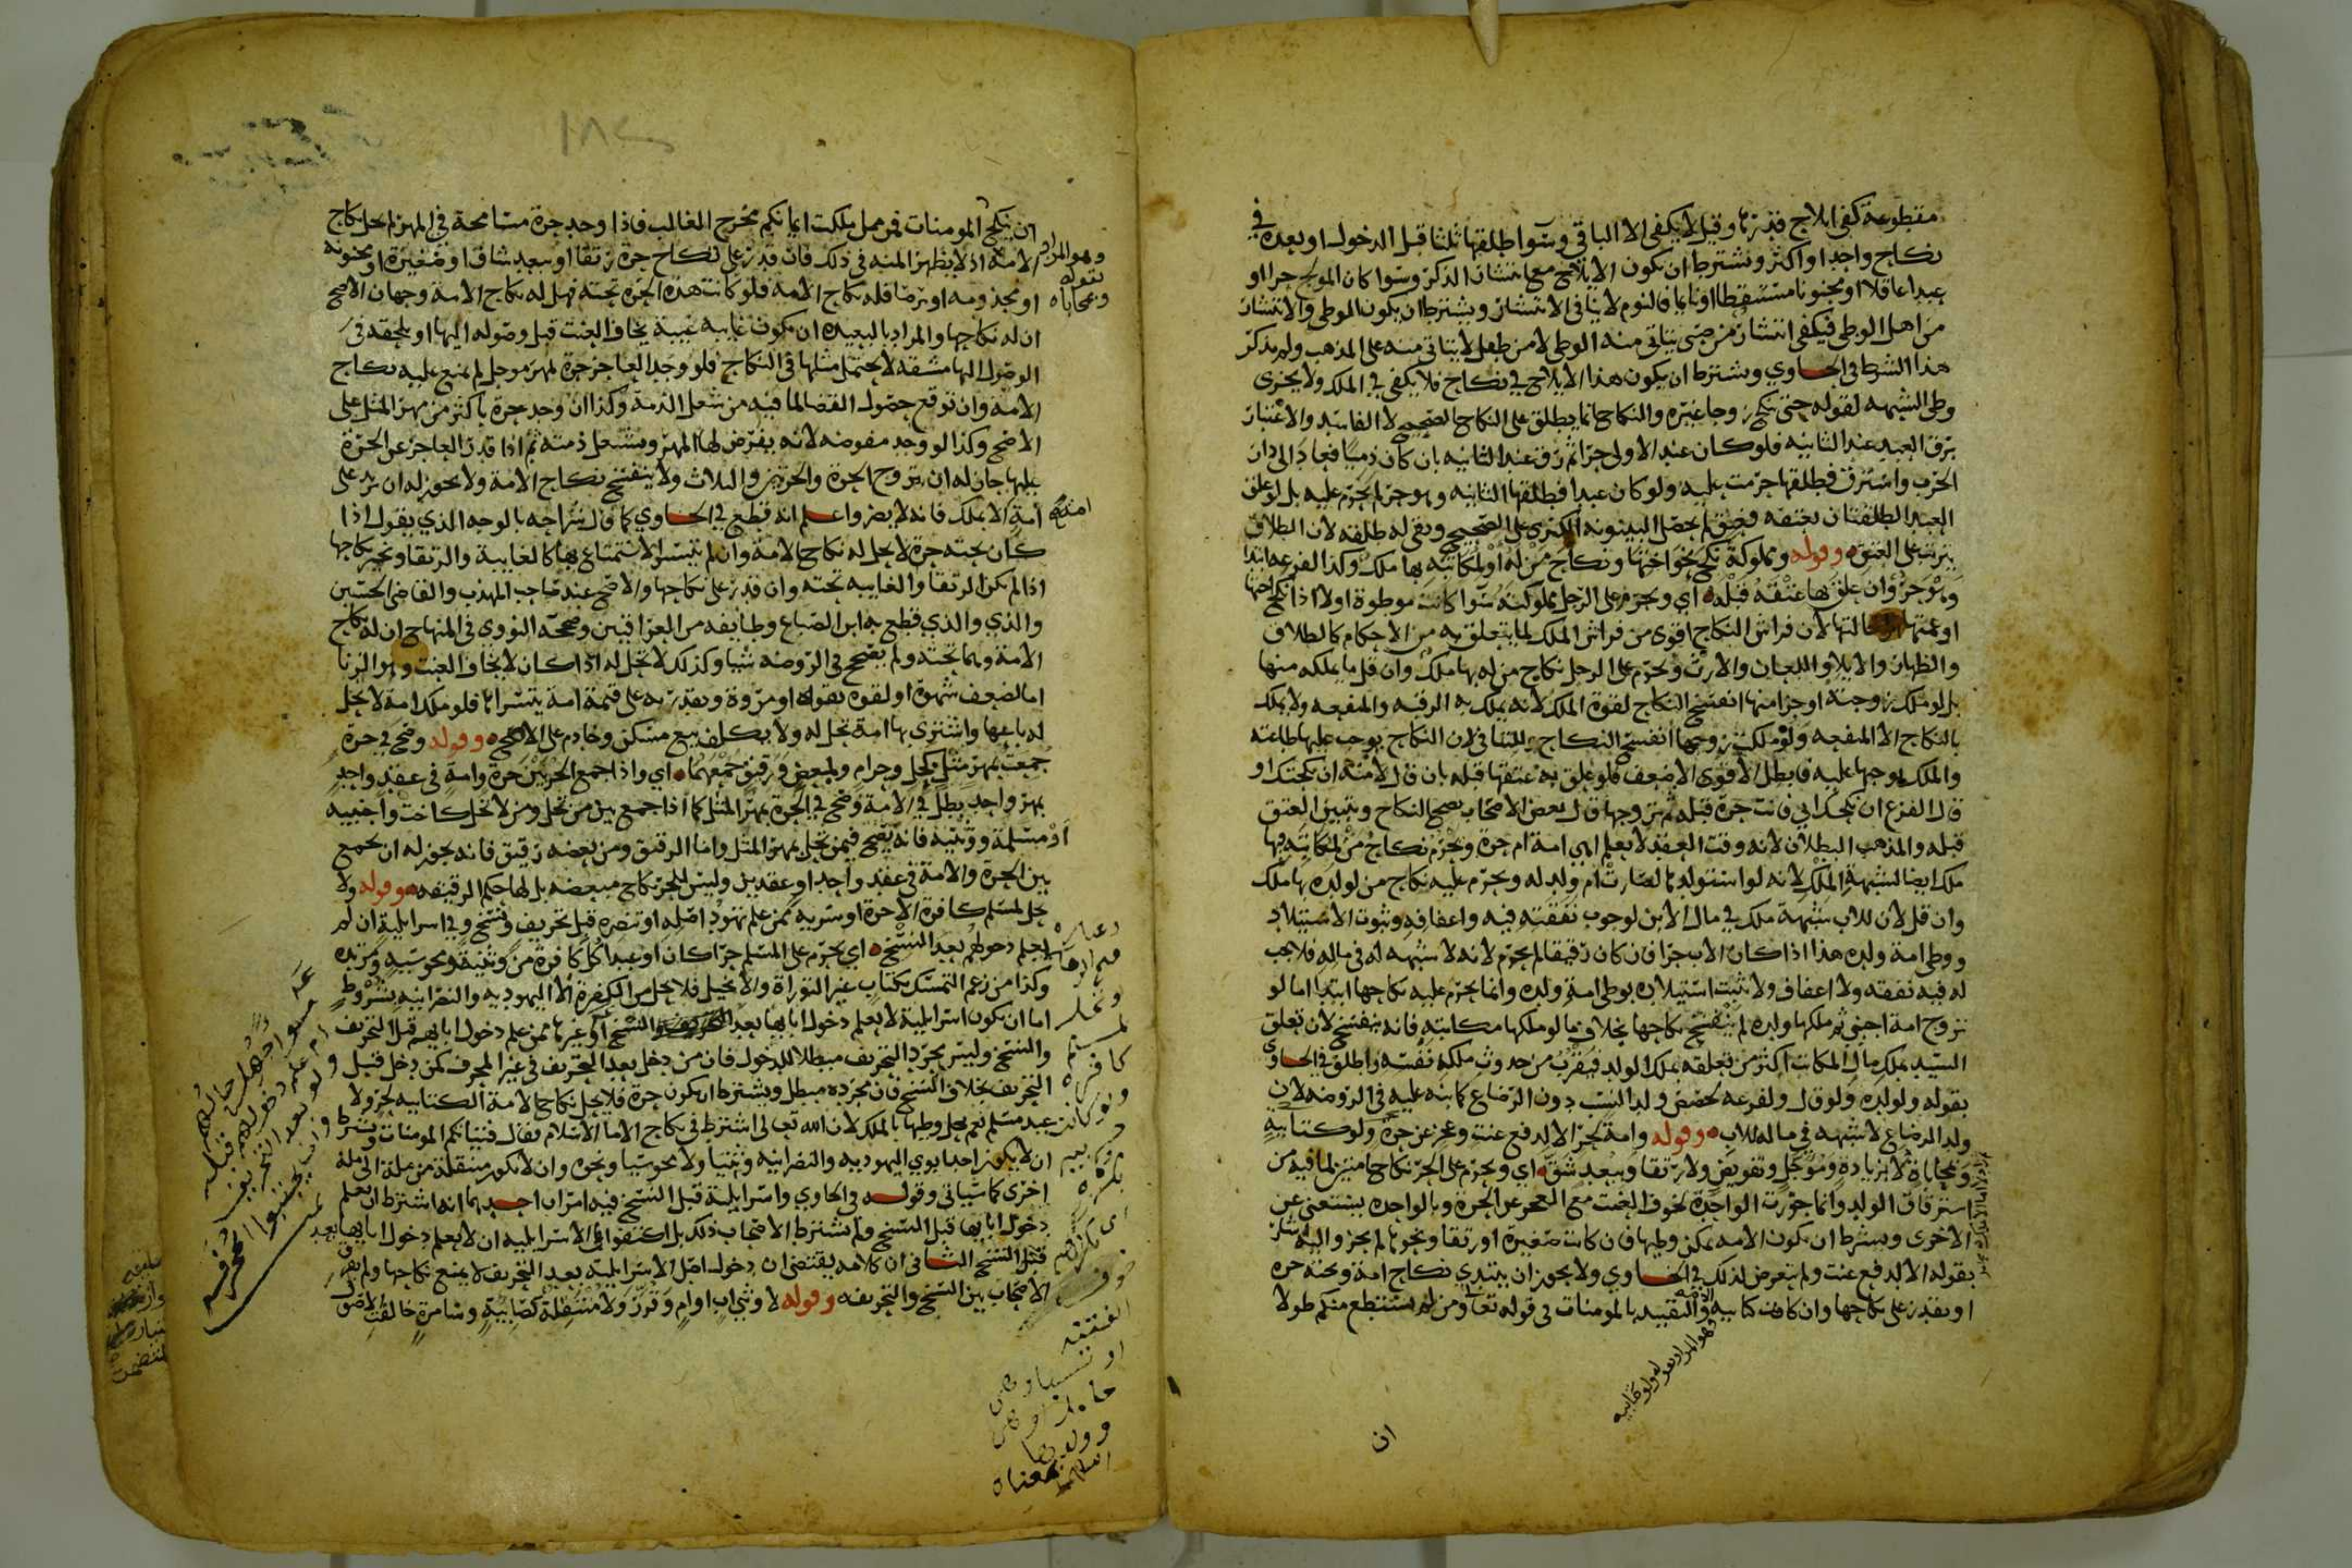 مقطوعة كفى ايلاج قدرها وقيل لا يكفى الا الباقي وسوا طلقها ثلثا قبل الدخول او بعده في
نكاح واحد او اكثر ويشترط ان يكون الايلاج مع انتشار الذكر وسوا كان المولج حرا او
عبدا عاقلا او مجنونا مستيقظا او نايما فالنوم لا ينافى الانتشار ويشترط ان يكون الموطي والانتشار
من اهل الوطي فيكفى انتشار من صبى يتاتى منه الوطي لا من طفل لا يتاتى منه على المذهب ولم يذكر
هذا الشرط في الحاوي ويشترط ان يكون هذا الايلاج في نكاح فلا يكفى في الملك ولا يجزى
وطي الشبهه لقوله حتى تنكح زوجا غيره والنكاح انما يطلق على النكاح الصحيح لا الفاسد والاعتبار
برق العبد عند الثانيه فلو كان عند الاولى حرا ثم رق عند الثانيه بان كان ذميا فعاد الى دار
الحرب واسترق فطلقها حرمت عليه ولو كان عبدا فطلقها الثانيه وهو حر لم تحرم عليه بل لو علق
العبد الطلقتان بعتقه فعتق لم يحصل البينونه الكبرى على الصحيح وبقى له طلقه لان الطلاق
يترتب على العتق وقوله ومملوكة نكح نحو اختها ونكاح من له او لمكاتبه بها ملك وكذا الفرعه ابتدا
وهو حر وان علق بها عتقه قبله اي ويحرم على الرجل مملوكته سوا كانت موطوة او لا اذا نكح اختها
او عمتها او خالتها لان فراش النكاح اقوى من فراش الملك لما يتعلق به من الاحكام كالطلاق
والظهار والايلا واللعان والارث ويحرم على الرجل نكاح من له بها ملك وان قل ما يملكه منها
بل لو ملك زوجته او جزا منها انفسخ النكاح لقوة الملك لانه يملك به الرقبه والمنفعه ولا يملك
بالنكاح الا المنفعه ولو ملكت زوجها انفسخ النكاح للتنافى لان النكاح يوجب عليها طاعته
والملك يوجبها عليه فابطل الاقوى الاضعف فلو علق به عتقها قبله بان قال لامته ان نكحتك او
قال الفرع ان نكحك ابي فانت حرة قبله ثم تزوجها قال بعض الاصحاب يصح النكاح ويتبين العتق
قبله والمذهب البطلان لانه وقت العقد لا يعلم اهي امة ام حرة ويحرم نكاح من لمكاتبه بها
ملك ايضا لشبهة الملك لانه لو استولدها لصارت ام ولد له ويحرم عليه نكاح من لولده بها ملك
وان قل لان للاب شبهة ملك في مال الابن لوجوب نفقته فيه واعفافه وثبوت الاستيلاد
ووطي امة ولده هذا اذا كان الاب حرا فان كان رقيقا لم يحرم لانه لا شبهه له في ماله فلا يجب
له فيه نفقه ولا اعفاف ولا يثبت استيلاده بوطي امة ولده وانما يحرم عليه نكاحها ابتدا اما لو
تزوج امة اجنبي ثم ملكها ولده لم ينفسخ نكاحها بخلاف ما لو ملكها مكاتبه فانه ينفسخ لان تعلق
السيد بملك مال المكاتب اكثر من تعلقه بملك الولد فيقرب من حدوث ملكه نفسه واطلق في الحاوي
بقوله ولولده ولو قال ولفرعه لخصص ولد النسب دون الرضاع كما نبه عليه في الروضه لان
ولد الرضاع لا شبهه في ماله للاب وقوله وامة لحر الا لدفع عنت وعجز عن حرة ولو كتابيه
ومحاباة لا بزيادة ومؤجل وتفويض ولا رتقا وبعد شق اي ويحرم على الحر نكاح امتين لما فيه من
استرقاق الولد وانما جوزت الواحدة لخوف العنت مع العجز عن الحرة وبالواحده يستغنى عن
الاخرى ويشترط ان يكون الامه يمكن وطيها فان كانت صغيرة او رتقا ونحوها لم يجز واليه اشار
بقوله الا لدفع عنت ولم يتعرض لذلك في الحاوي ولا يجوز ان يبتدي نكاح امة وتحته حره
او يقدر على نكاحها وان كانت كتابيه والتقييد بالمومنات في قوله تعالى ومن لم يستطع منكم طولا
وهو المراد بقوله ولو كتابيه
ان
ان ينكح المومنات فمن مما ملكت ايمانكم مخرج الغالب فاذا وجد حرة مسامحة في المهر لم يحل نكاح
الامة اذ لا يظهر المنه في ذلك فان قدر على نكاح حرة رتقا او بعيد شاق او صغيرة او مجنونه
وهو المراد بقوله ومحاباه
او مجذومه او برصا فله نكاح الامة فلو كانت هذه الحره تحته فهل له نكاح الامة وجهان الاصح
ان له نكاحها والمراد بالبعيده ان يكون غايبه غيبة يخاف العنت قبل وصوله اليها او يلحقه في
الوصول اليها مشقة لا يحتمل مثلها في النكاح فلو وجد العاجز حرة لمهر موجل لم يمنع عليه نكاح
الامة وان توقع حصول القضا لما فيه من شغل الذمة وكذا ان وجد حرة باكثر من مهر المثل على
الاصح وكذا لو وجد مفوضه لانه يفرض لها المهر ويشتغل ذمته ثم اذا قدر العاجز عن الحرة
عليها جاز له ان يتزوج الحرة والحرتين والثلاث ولا ينفسخ نكاح الامة ولا يجوز له ان يزيد على
امة الا بملك فانه لا يضر واعلم انه قطع في الحاوي كما قال شراحه بالوجه الذي يقول اذا
كان تحته حرة لا يحل له نكاح الامة وان لم يتيسر الاستمتاع بها كالغايبة والرتقا ونحو نكاحها
اذا لم تكن الرتقا والغايبه تحته وان قدر على نكاحها والاصح عند صاحب المهذب والقاضي الحسين
والذي والذي قطع به ابن الصباغ وطايفه من العراقيين وصححه النووي في المنهاج ان له نكاح
الامة وهما تحته ولم يصحح في الروضه شيا وكذلك لا تحل له اذا كان لا يخاف العنت وهو الزنا
اما لضعف شهوة او لقوة تقواه او مروة ويقدر به على قيمة امة يتسرا بها فلو ملك امة لا يحل
له باعها واشترى بها امة تحل له ولا يكلف بيع مسكن وخادم على الاصح وقوله وصح في حرة
جمعت بمهر مثل لحل وحرام ولبعض رقيق جمعهما اي واذا جمع الحر بين حرة وامة في عقد واحد
بمهر واحد بطل في الامة وصح في الحرة بمهر المثل كما اذا جمع بين من تحل ومن لا تحل كاخت واجنبيه
او مسلمة ووثنيه فانه يصح فيمن تحل بمهر المثل واما الرقيق ومن بعضه رقيق فانه يجوز له ان يجمع
بين الحرة والامة في عقد واحد او عقدين وليس للحر نكاح مبعضه بل لها حكم الرقيقه وقوله ولا
يحل لمسلم كافرة الا حرة او سريه ممن علم تهود اصله او تنصره قبل تحريف ونسخ وفي اسرايلية ان لم
يعلم دخولهم بعد النسخ اي يحرم على المسلم حرا كان او عبدا كل كافرة من وثنية ومجوسيه ومرتده
وكذا من زعم التمسك بكتاب غير التوراة والانجيل فلا يحل من الكفرة الا اليهوديه والنصرانيه بشروط
اما ان يكون اسرايلية لا يعلم دخول ابايها بعد النسخ او غيرها ممن علم دخول ابايهم قبل التحريف
والنسخ وليس بمجرد التحريف مبطلا للدخول فان من دخل بعد التحريف في غير المحرف كمن دخل قبل
التحريف بخلاف النسخ فان مجرده مبطل ويشترط ان يكون حرة فلا يحل نكاح الامة الكتابيه لحر ولا
عبد مسلم نعم يحل وطيها بالملك لان الله تعالى اشترط في نكاح الاما الاسلام فقال فتياتكم المومنات ويشترط
ان لا يكون احد ابوي اليهوديه والنصرانيه وثنيا ولا مجوسيا ونحوه وان لا يكون منتقلة من ملة الى ملة
اخرى كما سياتي وقوله في الحاوي واسرايلية قبل النسخ فيه امران احدهما انه اشترط ان يعلم
دخول ابايها قبل النسخ ولم يشترط الاصحاب ذلك بل اكتفوا في الاسرايليه ان لا يعلم دخول ابايها بعد
قبل النسخ الثاني ان كلامه يقتضى ان دخول اصل الاسرايلية بعد التحريف لا يمنع نكاحها ولم يفرق
الاصحاب بين النسخ والتحريف وقوله لا وثني اب او ام وتقرر ولا منتقلة كصابيية وسامرة خالفت الاصول